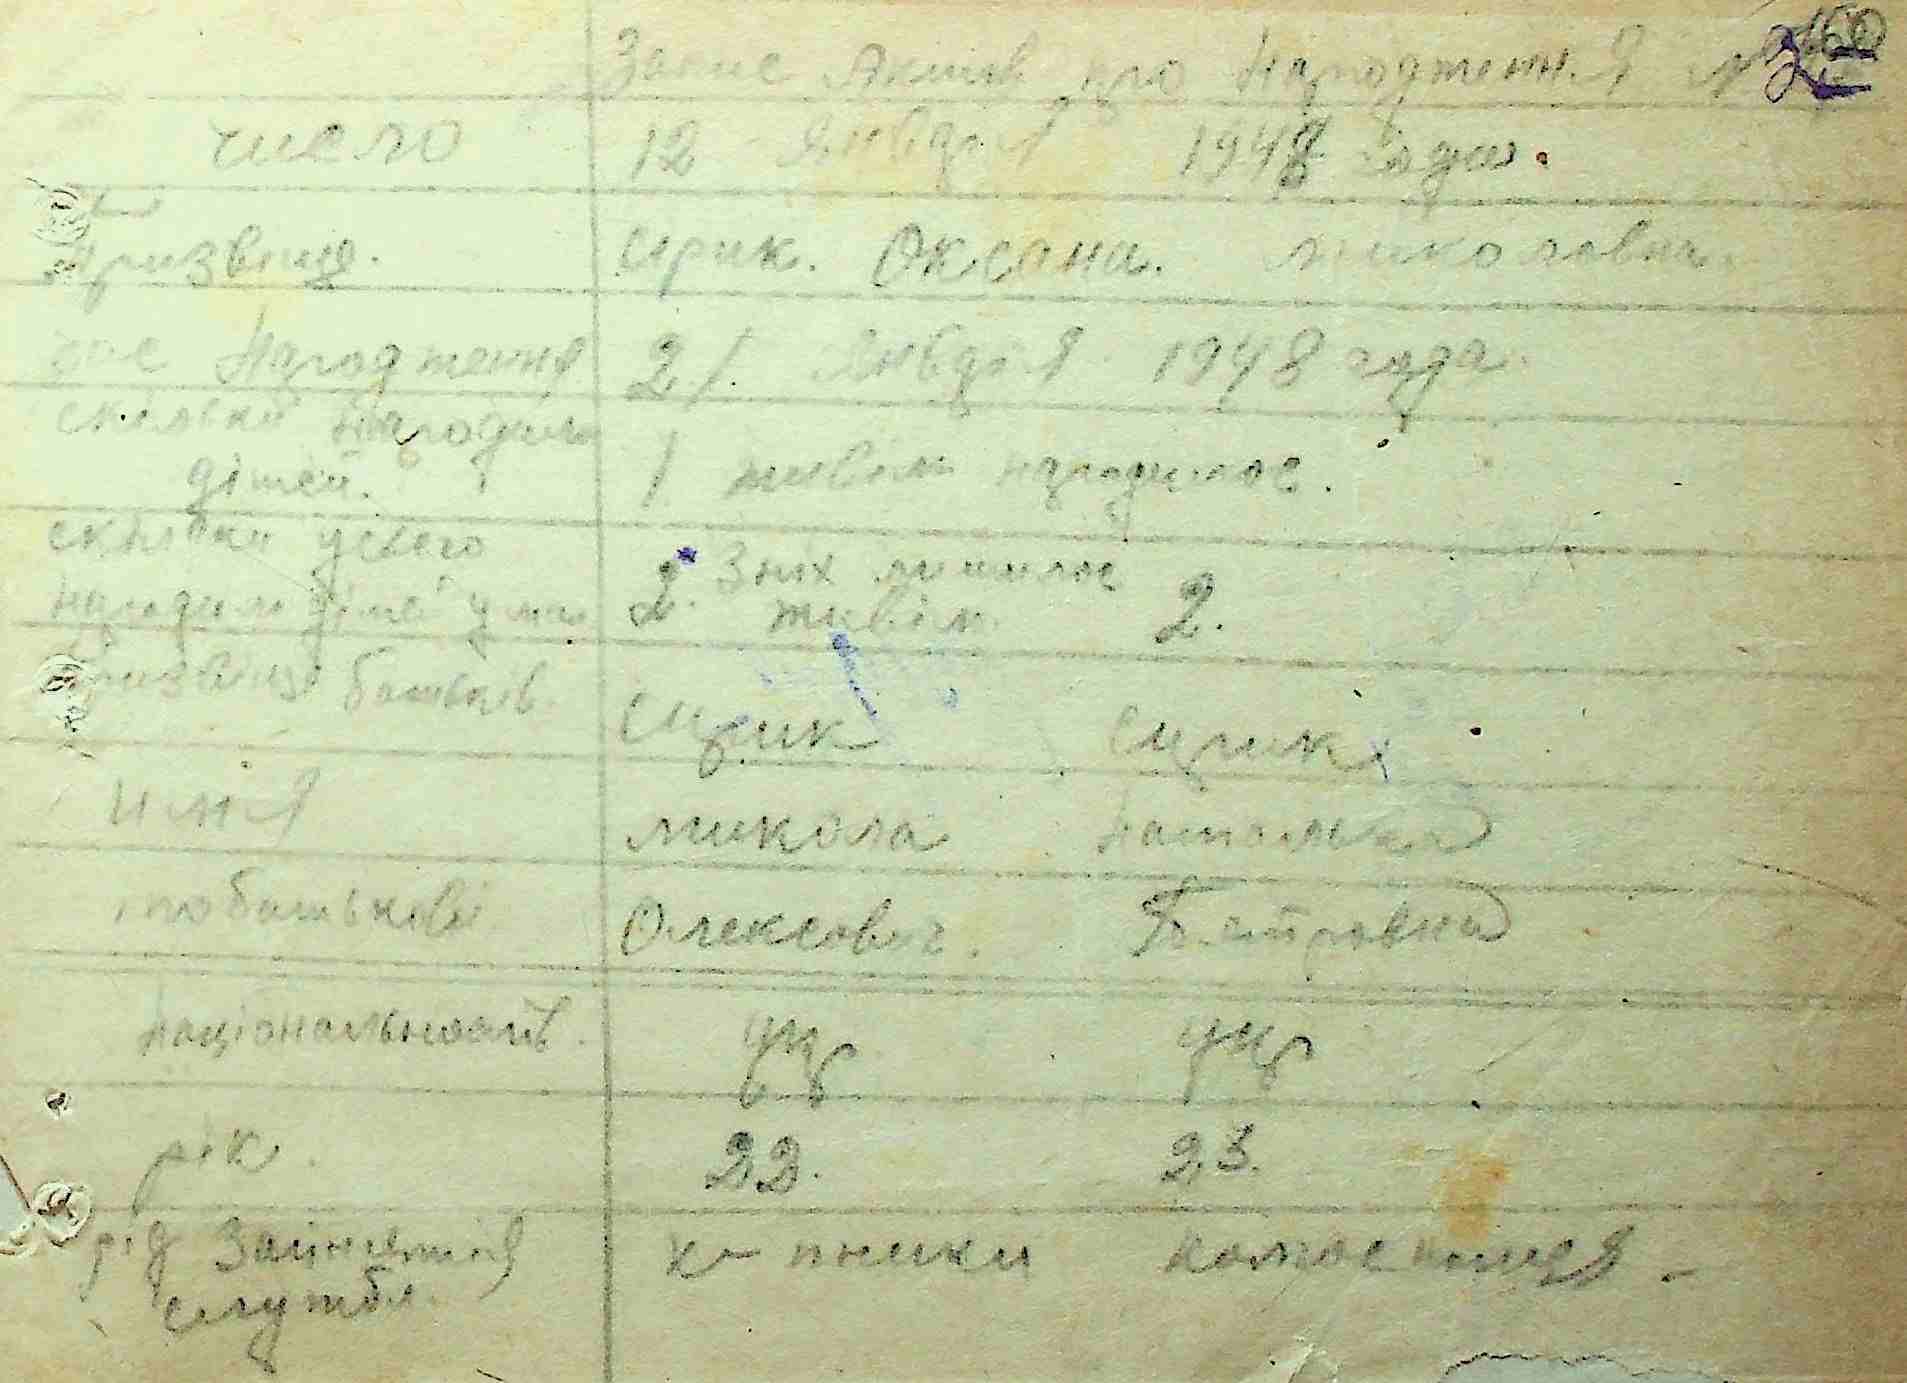 Запис Актів про Народженн.Я
число 12 Января 1948 года.
Призвище. Сірик. Оксана. Миколовна.
час Народження 2/. Января 1948 года.
скильки Народило 
дітей. 1 живим народилос.
скільки усього 2. З них лишилос
народила дітей у живім 2.
призвище батьків. Сирик Сирик
имя микола наталька
по батькові Олексович. Петровна
національность. укр укр
рік. 22. 23.
рід Заинятия к-пники колгоспниця
служби.